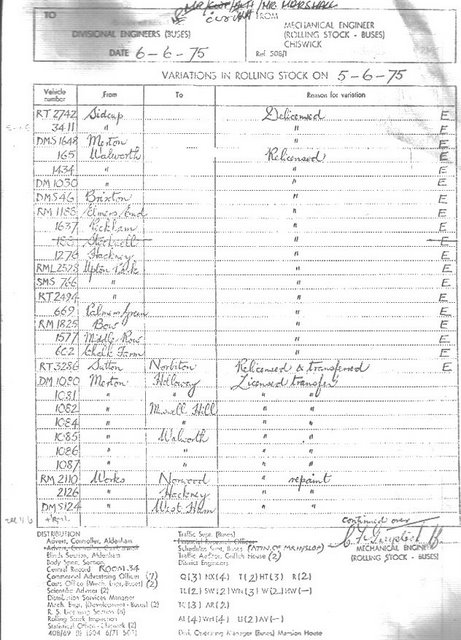 TO
MR MARSHALL
FROM
DIVISIONAL ENGINEERS (BUSES)
MECHANICAL ENGINEER
(ROLLING STOCK - BUSES)
CHISWICK
DATE 6-6-75
Ref. 508/1
VARIATIONS IN ROLLING STOCK ON 5-6-75
Vehicle number From To Reason for variation
RT 2742 Sidcup Delicensed E
3411 " " E
DMS 1648 Merton " E
165 Walworth Relicensed E
1434 " " E
DM 1030 " " E
DMS 46 Brixton " E
RM 1183 Elmers End " E
1637 Peckham " E
Stockwell " E
1276 Hackney " E
RML 2523 Upton Park " E
SMS 766 " " E
RT 2494 " " E
669 Palmers Green " E
RM 1825 Bow " E
1577 Middle Row " E
602 Chalk Farm " E
RT 3286 Sutton Norbiton Relicensed & transferred E
DM 1080 Merton Holloway Licensed transfer
1081 " " " "
1082 " Muswell Hill " "
1084 " " " "
1085 " Walworth " "
1086 " " " "
1087 " " " "
RM 2110 Works Norwood " repaint
2126 " Hackney " "
DMS 124 " West Ham " "
continued over
MECHANICAL ENGINEER
(ROLLING STOCK - BUSES)
DISTRIBUTION
Advert. Controller, Aldenham
Body Span. Section
Central Record ROOM 34
Commercial Advertising Officer (7)
Costs Office (Mech. Engr. Buses) (2)
Scientific Adviser (2)
Distribution Services Manager
Mech. Engr. (Development - Buses) (2)
R. S. Licensing Section (6)
Rolling Stock Inspection
Statistical Officer - Chiswick (2)
Traffic Supt. (Buses)
Schedules Supt. Buses
Traffic Auditor, Griffith House (2)
District Engineers
Q(3) NX(4) T(2) HT(3) R(2)
TC(3) AR(2)
Dist. Operating Manager (Buses) Mansion House